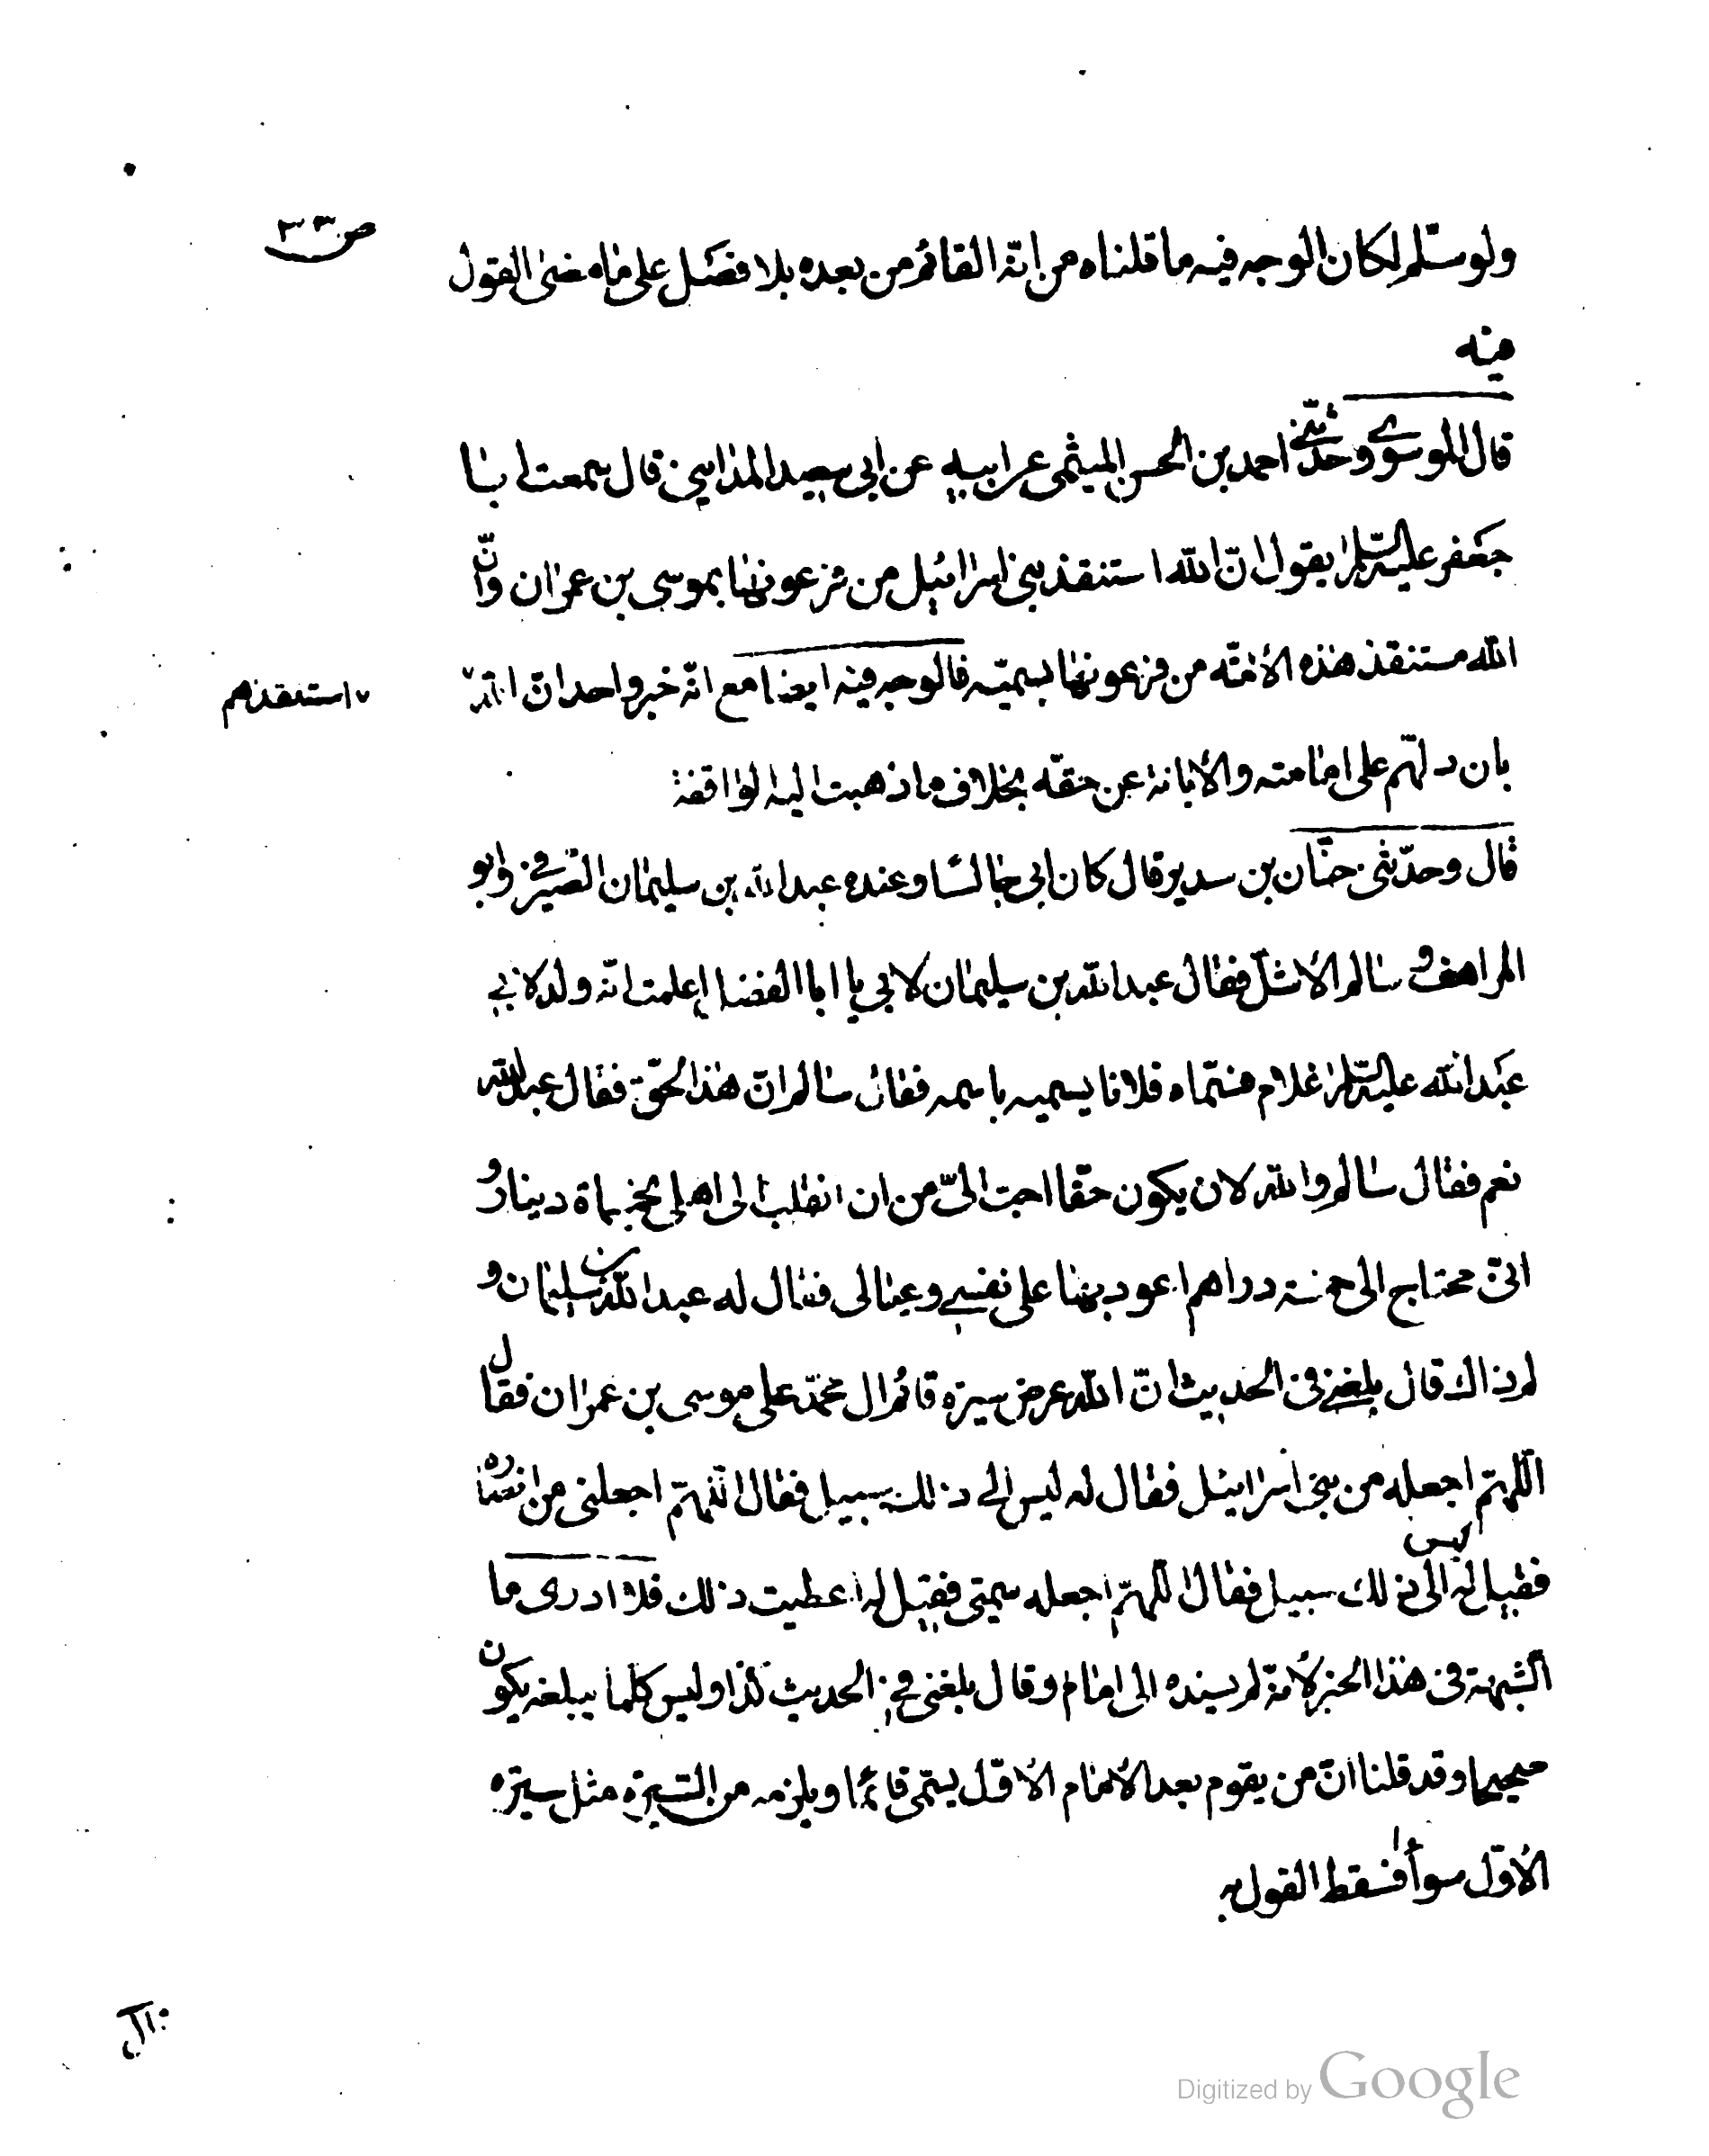 ص ٣٣
ولو سلّم لكان الوجه فيه ما قلناه من انّه القائم من بعده بلا فصل على ما مضى القول
فيه
قال الموسوي وحدّثني احمد بن الحسن الميثمى عن ابيه عن ابى سعيد المدايني قال سمعت ابا
جعفر عليه السّلام يقول انّ الله استنقذ بني اسرائيل من فرعونها بموسى بن عمران وانّ
الله مستنقذ هذه الأمّة من فرعونها بسميّه فالوجه فيه ايضا مع انّه خبر واحد انّ الله
استنقذهم
بان دلّهم على امامته والأبانة عن حقّه بخلاف ما ذهبت اليه الواقفة
قال وحدّثنى حنّان بن سدير قال كان ابى جالسا وعنده عبد الله بن سليمان الصّيرفي وابو
المراهف و سالم الأشلّ فقال عبد الله بن سليمان لابى يا ابا الفضل اعلمت انّه ولد لابي
عبد الله عليه السّلام غلام فسمّاه فلانا يسميه باسمه فقال سالم انّ هذا لحقّ فقال عبد الله
نعم فقال سالم والله لان يكون حقّا احبّ الىّ من ان انقلب الى اهلى بخمسماة دينار و
انىّ محتاج الى خمسة دراهم اعود بها على نفسي وعيالى فقال له عبد الله بن سليمان و
لم ذاك قال بلغني فى الحديث انّ الله عرض سيرة قائم ال محمّد على موسى بن عمران فقال
اللّهمّ اجعله من بني اسرائيل فقال له ليس الى ذلك سبيل فقال اللّهمّ اجعلنى من انصاره
فقيل له ليس الى ذلك سبيل فقال اللّهمّ اجعله سميّى فقيل له اعطيت ذلك فلا ادرى ما
الشّبهة فى هذا الخبر لأنّه لم يسنده الى امام وقال بلغنى في الحديث كذا وليس كلما يبلغه يكون
صحيحا وقد قلنا انّ من يقوم بعد الأمام الأوّل يسمّى قائما ويلزمه من السّيرة مثل سيرة
الأوّل سواء فسقط القول به
Digitized by Google